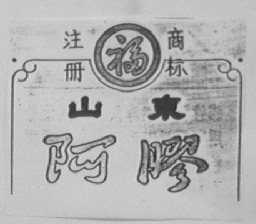 注册
福
商标
山東
阿膠